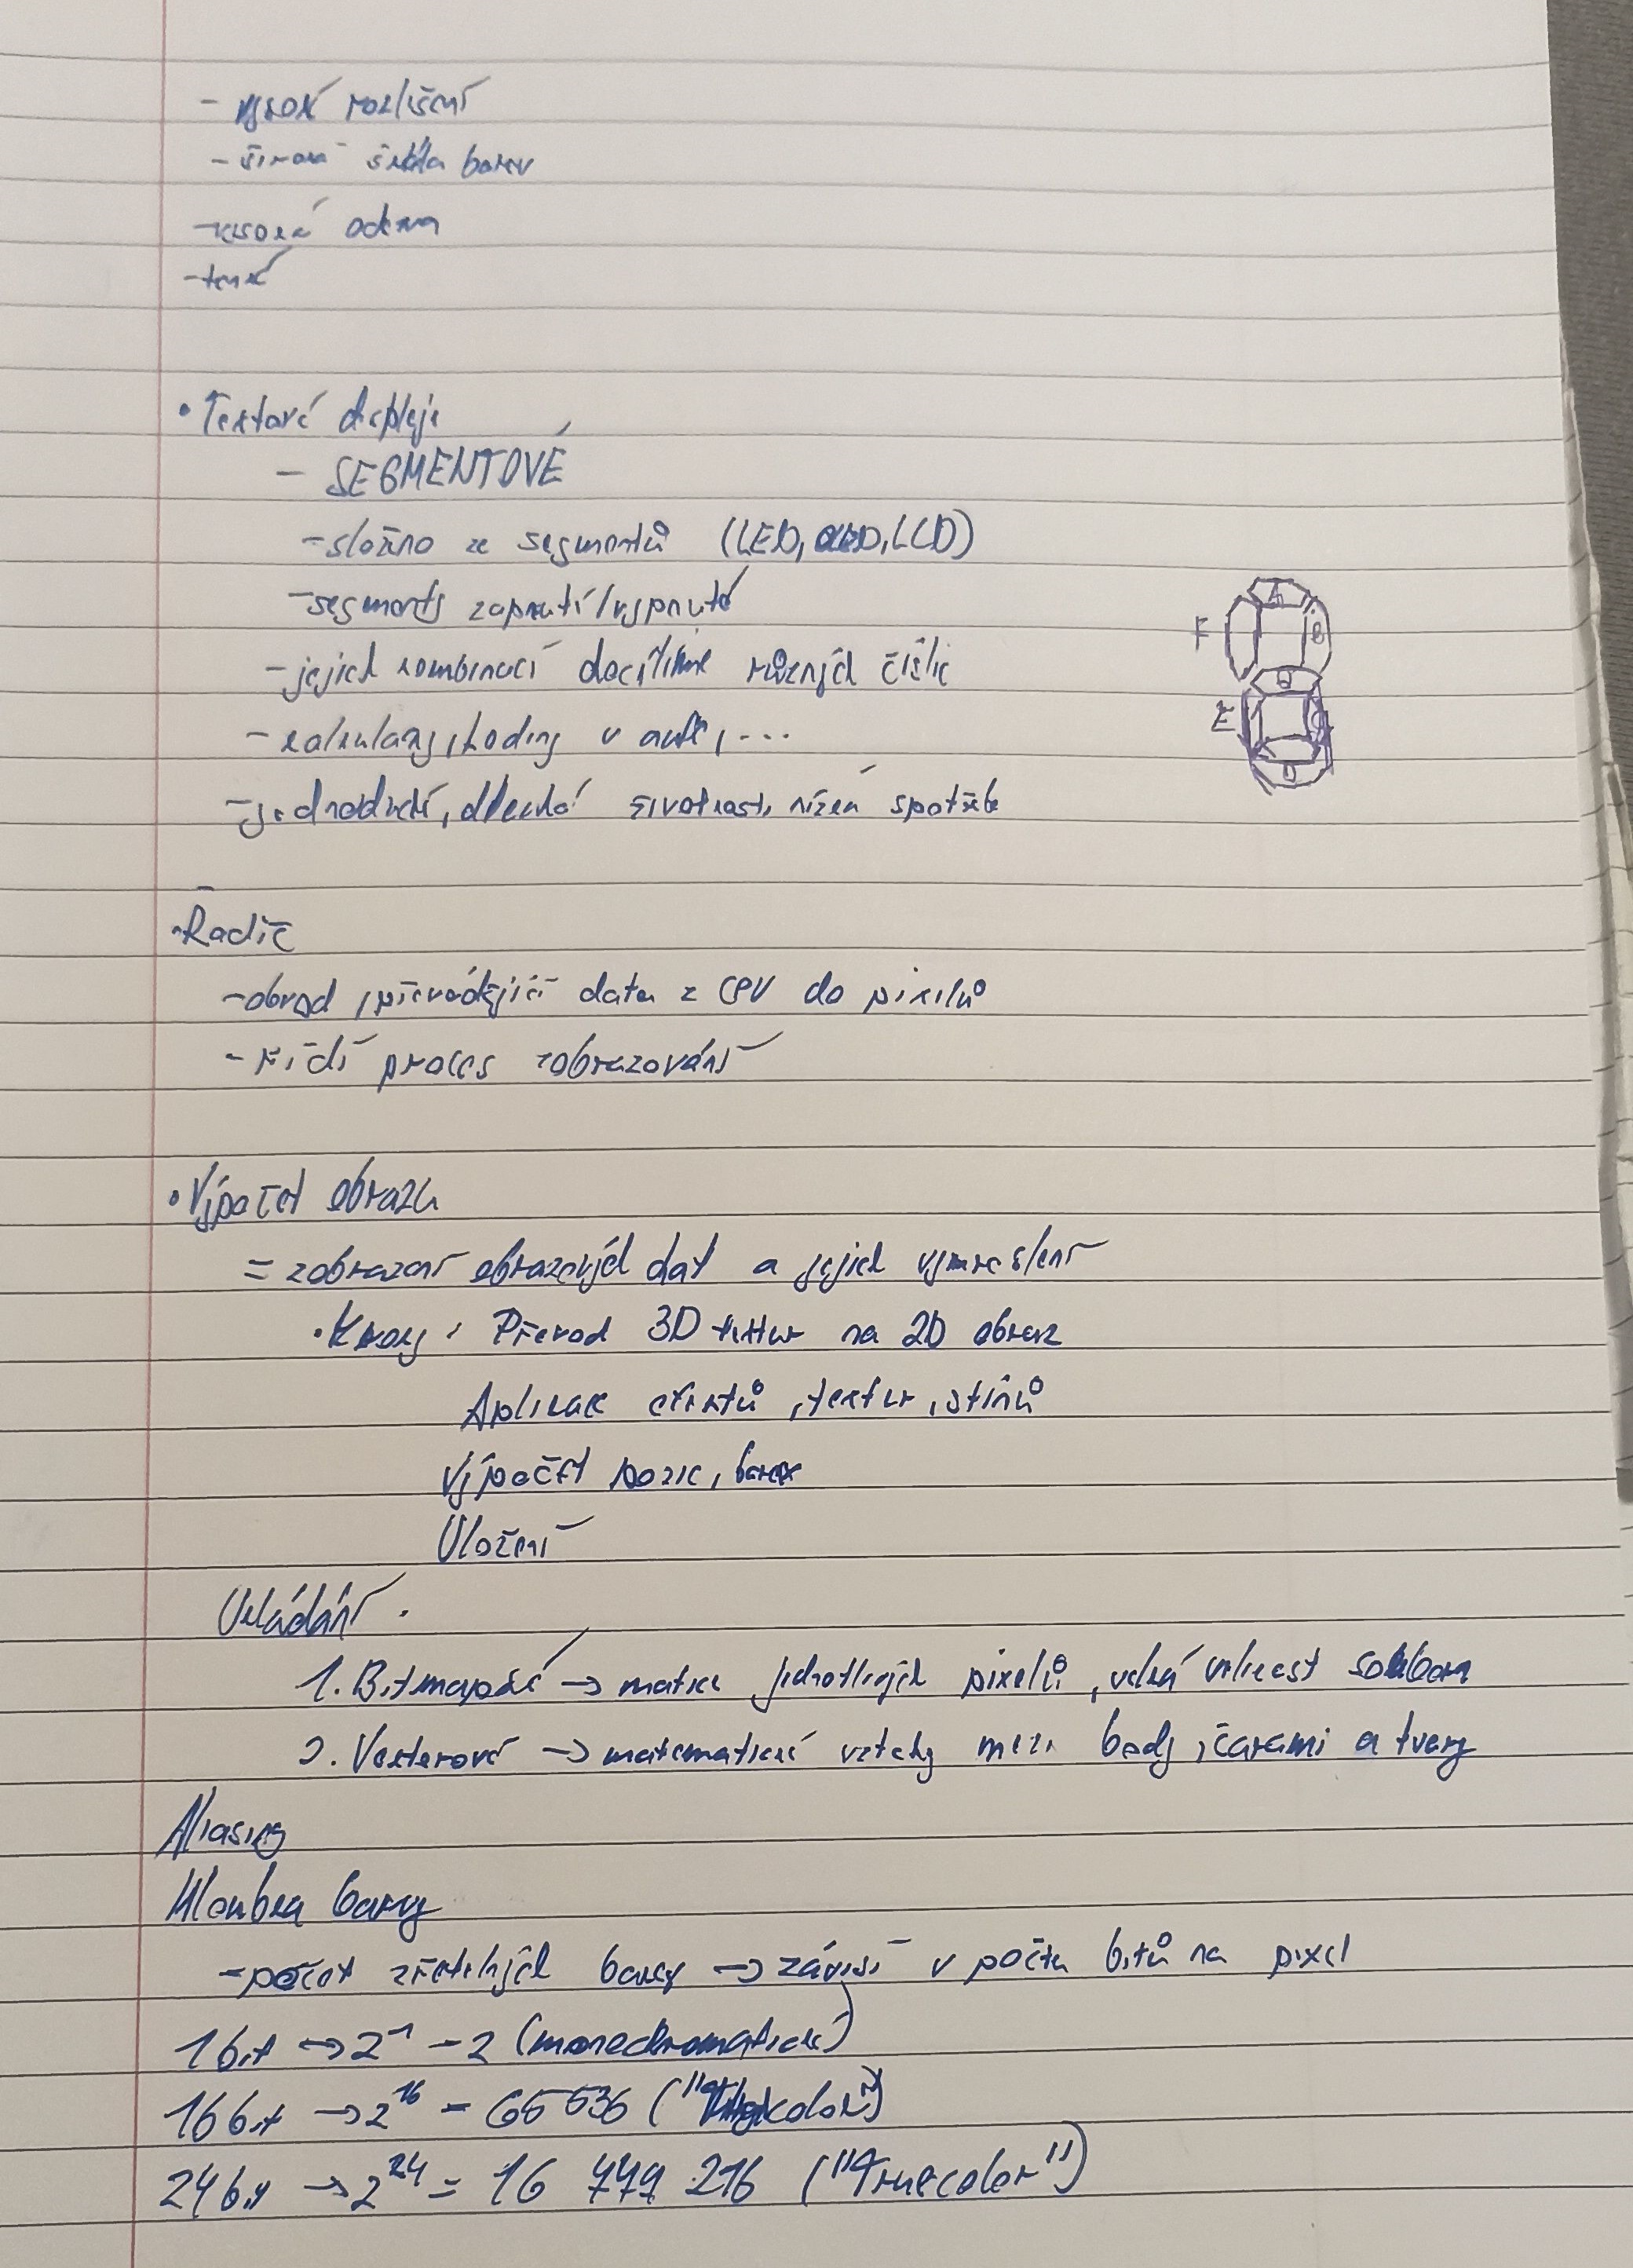 - vysoké rozlišení
- široká škála barev
- vysoká odezva
- tenké
• Textové displeje
- SEGMENTOVÉ
- složeno ze segmentů (LED, OLED, LCD)
- segmenty zapnuté/vypnuté
- jejich kombinací docílíme různých číslic
- kalkulačky, hodiny v autě, ...
- jednoduché, dlouhá životnost, nízká spotřeba
A
F
B
G
E
C
D
• Řadič
- obvod, převádějící data z CPU do pixelů
- řídí proces zobrazování
• Výpočet obrazu
= zobrazení obrazových dat a jejich vykreslení
• Kroky: Převod 3D textur na 2D obraz
Aplikace efektů, textur, stínů
Výpočet pozic, barev
Uložení
Ukládání:
1. Bitmapové → matice jednotlivých pixelů, velká velikost souboru
2. Vektorové → matematické vztahy mezi body, čarami a tvary
Aliasing
Hloubka barvy
- počet zřetelných barev → závisí v počtu bitů na pixel
1 bit → 2¹ - 2 (monochromatické)
16 bit → 2¹⁶ = 65 536 ("Highcolor")
24 bit → 2²⁴ = 16 777 216 ("Truecolor")